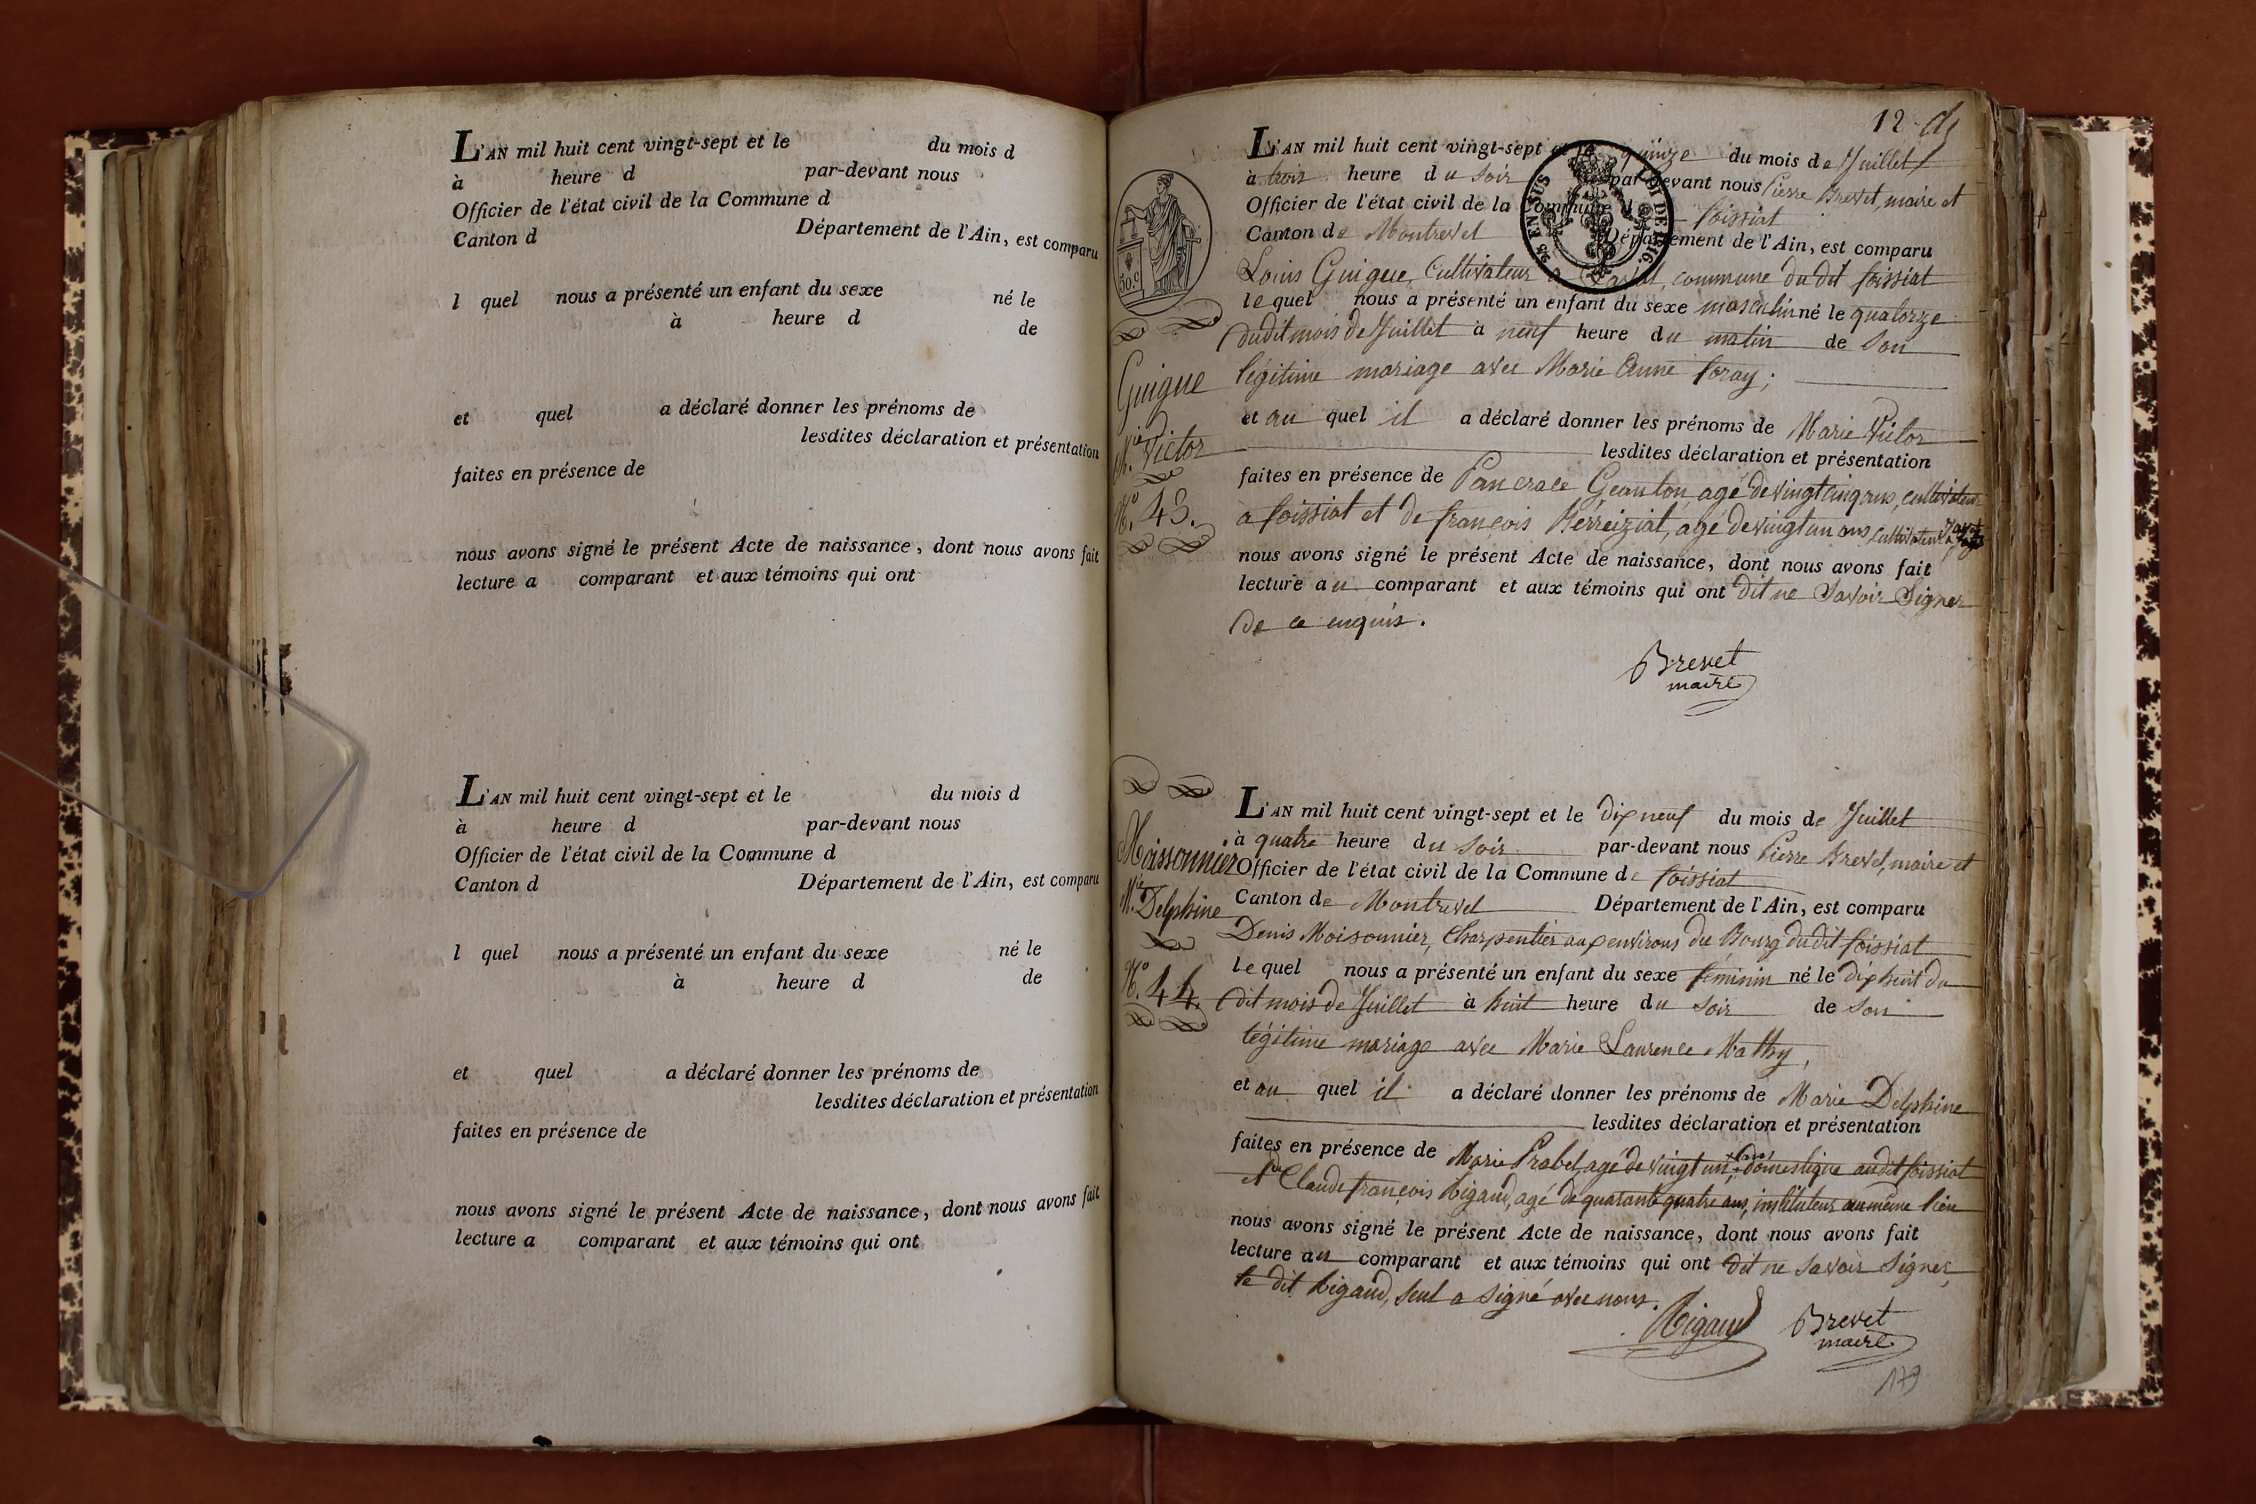 L'AN mil huit cent vingt-sept et le du mois d
à heure d par-devant nous
Officier de l'état civil de la Commune d
Canton d Département de l'Ain, est comparu
l quel nous a présenté un enfant du sexe né le
à heure d de
et quel a déclaré donner les prénoms de
lesdites déclaration et présentation
faites en présence de
nous avons signé le présent Acte de naissance, dont nous avons fait
lecture a comparant et aux témoins qui ont
L'AN mil huit cent vingt-sept et le du mois d
à heure d par-devant nous
Officier de l'état civil de la Commune d
Canton d Département de l'Ain, est comparu
l quel nous a présenté un enfant du sexe né le
à heure d de
et quel a déclaré donner les prénoms de
lesdites déclaration et présentation
faites en présence de
nous avons signé le présent Acte de naissance, dont nous avons fait
lecture a comparant et aux témoins qui ont
12
50 c
EN SUS LOI DE 1816.
Guigue
M.ie Victor
N.o 43.
L'AN mil huit cent vingt-sept et le quinze du mois de Juillet
à trois heure du soir par-devant nous Pierre Brevet, maire et
Officier de l'état civil de la Commune de foissiat
Canton de Montrevel Département de l'Ain, est comparu
Louis Guigue, Cultivateur commune du dit foissiat
le quel nous a présenté un enfant du sexe masculin né le quatorze
dudit mois de Juillet à neuf heure du matin de Son
légitime mariage avec Marie Anne foray;
et au quel il a déclaré donner les prénoms de Marie Victor
lesdites déclaration et présentation
faites en présence de Pancrace Geanton, agé de vingt cinq ans, cultivateur
à foissiat et de françois Berreiziat, agé de vingt un ans cultivateur à
nous avons signé le présent Acte de naissance, dont nous avons fait
lecture au comparant et aux témoins qui ont dit ne Savoir Signer
de ce enquis.
Brevet
maire
Moissonnier
M.ie Delphine
N.o 44.
L'AN mil huit cent vingt-sept et le dix neuf du mois de Juillet
à quatre heure du soir par-devant nous Pierre Brevet, maire et
Officier de l'état civil de la Commune de foissiat
Canton de Montrevel Département de l'Ain, est comparu
Denis Moisonnier, Charpentier aux environs du Bourg du dit foissiat
le quel nous a présenté un enfant du sexe féminin né le dix huit du
dit mois de Juillet à huit heure du soir de son
légitime mariage avec Marie Laurence Mathy,
et au quel il a déclaré donner les prénoms de Marie Delphine
lesdites déclaration et présentation
faites en présence de Marie Prabel, agé de vingt un ans, domestique audit foissiat
et de Claude françois Rigaud, agé de quarante quatre ans, instituteur au même lieu
nous avons signé le présent Acte de naissance, dont nous avons fait
lecture au comparant et aux témoins qui ont dit ne savoir signer,
le dit Rigaud, seul a signé avec nous.
Rigaud Brevet
maire
179